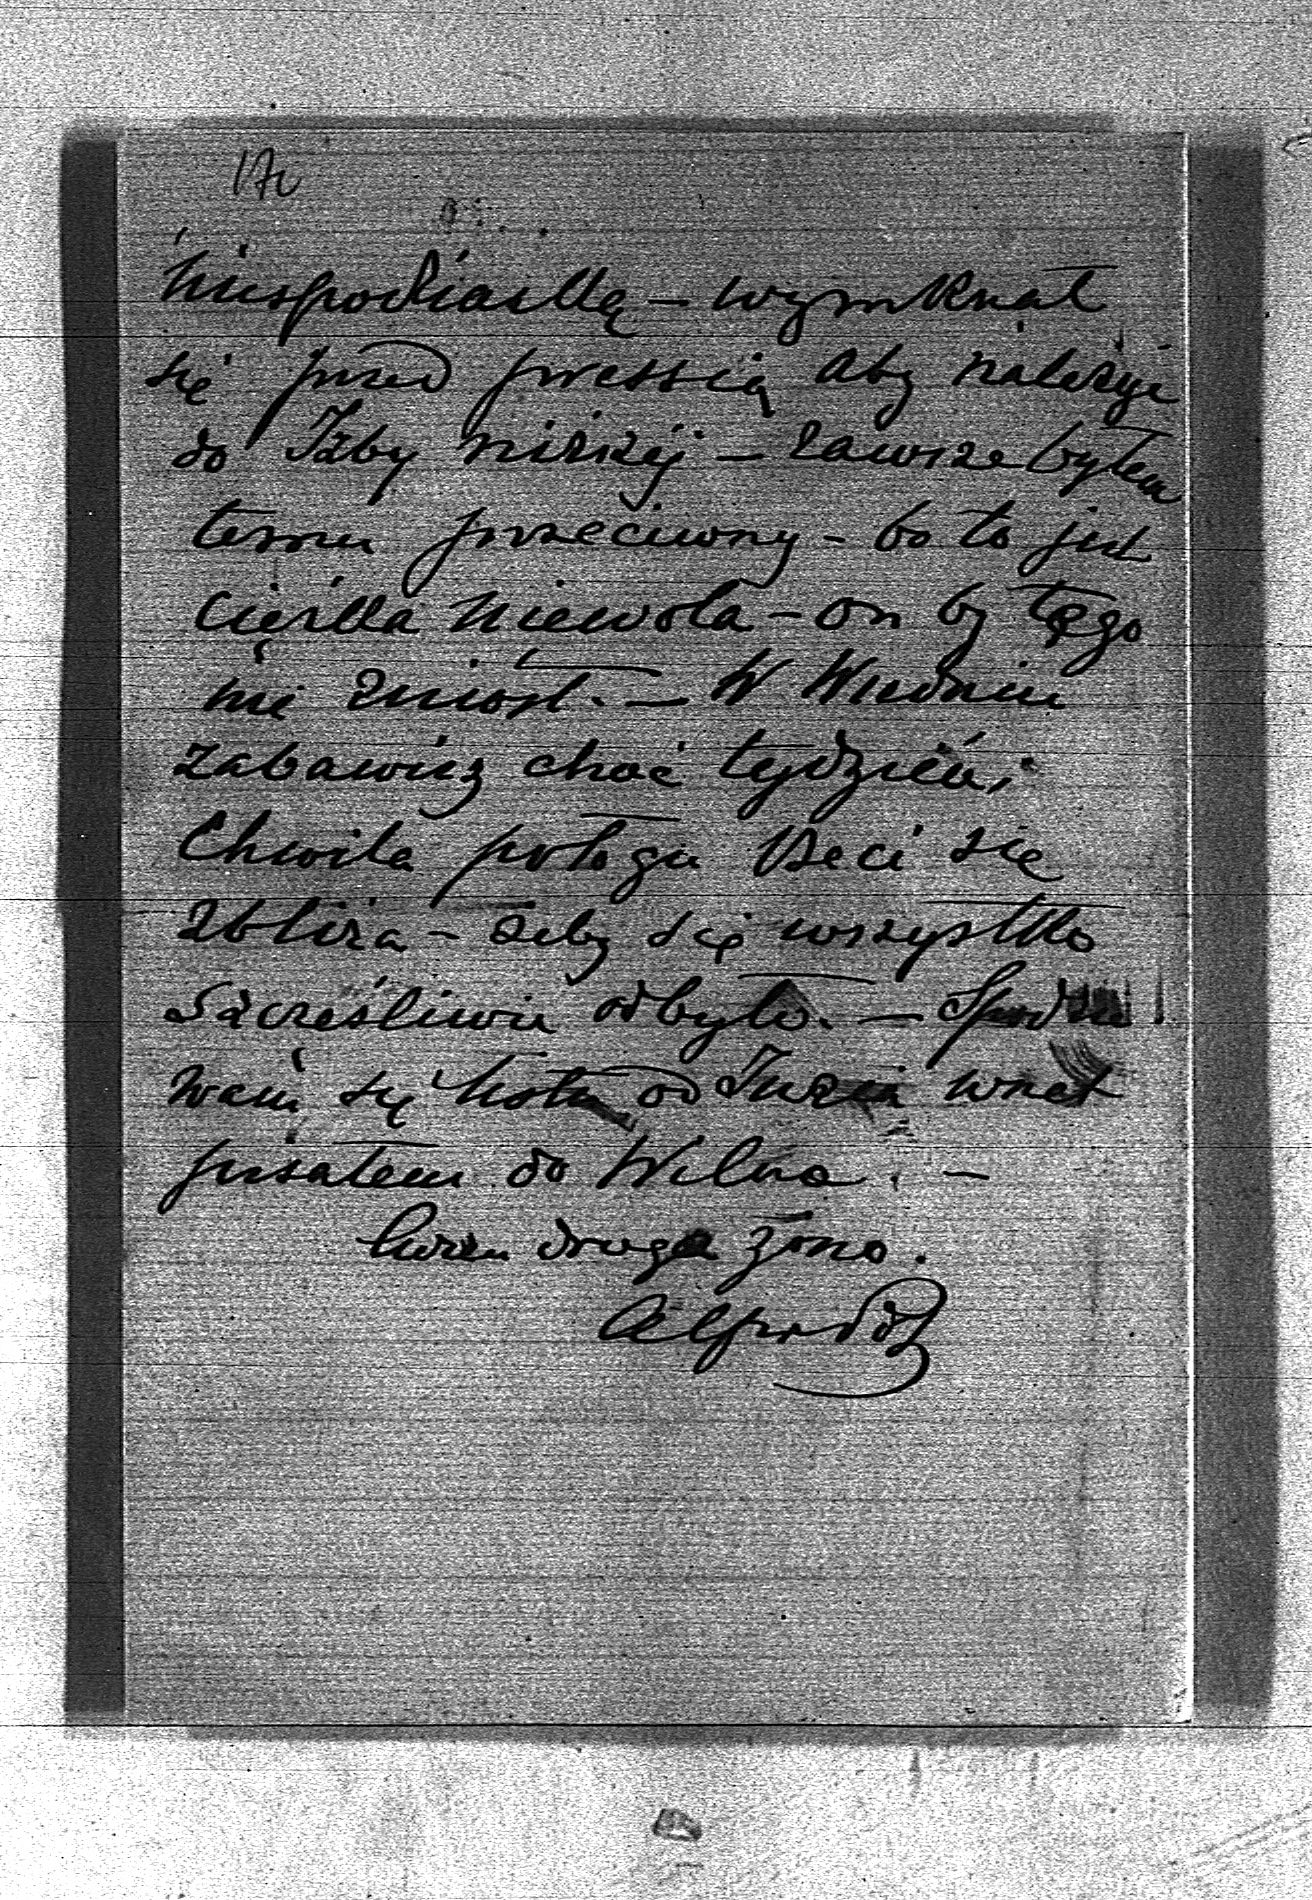 niespodziankę – wymknął
się przed pressią aby należyć
do Izby niższej – zawsze byłem
temu przeciwny – bo to jest
ciężka niewola – on by tego
nie zniósł. – W Wiedniu
zabawisz choć tydzień;
Chwila połogu Beci się
zbliża – żeby się wszystko
szczęśliwie odbyło. – Spodzie
wam się listu od Józia
pisałem do Wilna. –
droga żono.
Alfred